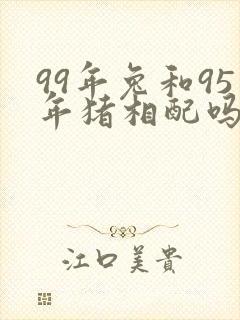 99年兔和95
年猪相配吗
江口美貴